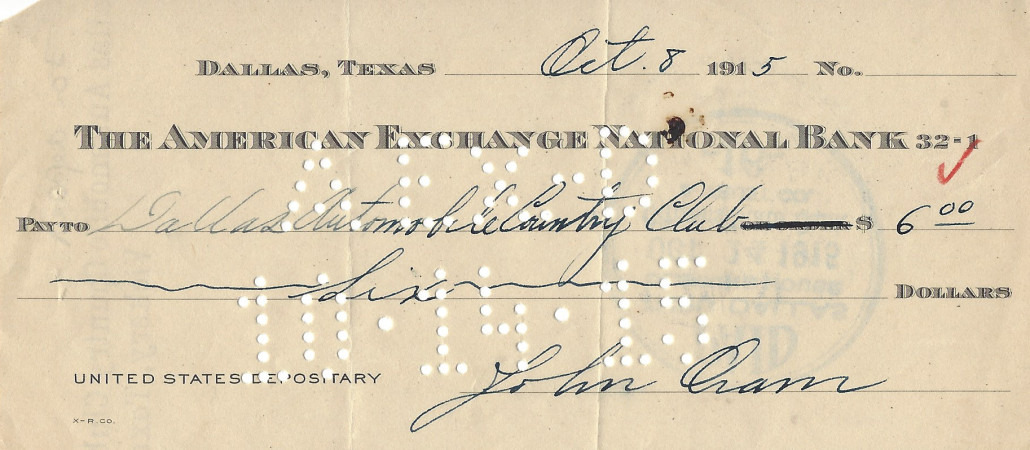 DALLAS, TEXAS Oct. 8 1915 No.
THE AMERICAN EXCHANGE NATIONAL BANK 32-1
PAY TO Dallas Automobile Country Club OR ORDER $ 6 00
Six DOLLARS
10·14·15
UNITED STATES DEPOSITARY
John Cram
X-R.CO.